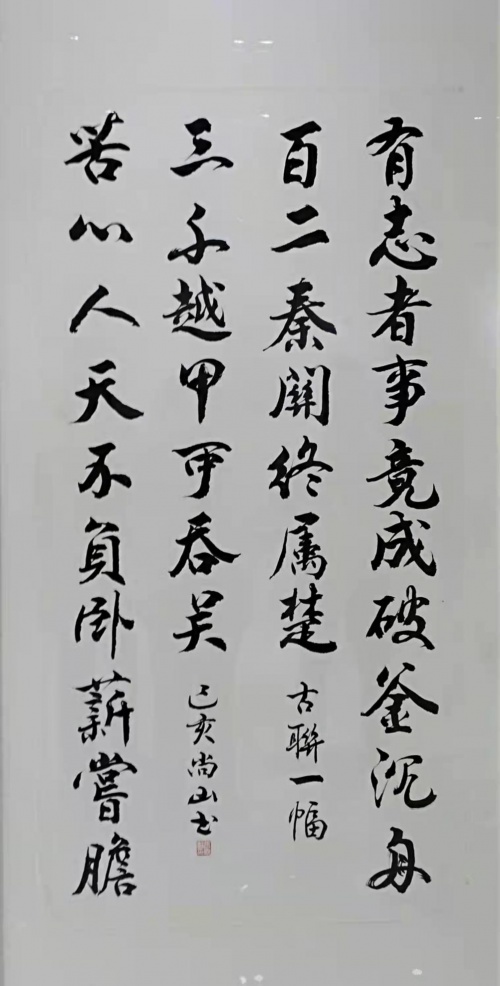 有志者事竟成破釜沉舟
百二秦關終属楚
古聯一幅
三千越甲可吞吴
己亥尚山书
苦心人天不負卧薪嘗膽